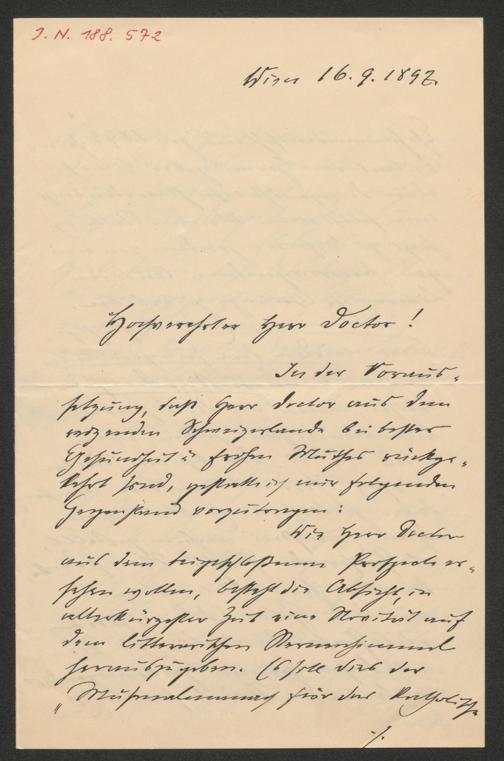 J. N. 188.572
Wien 16.9.1892.
Hochverehrter Herr Doctor!
In der Voraus-
setzung, daß Herr Doctor aus dem
reizenden Schweizerlande bei bester
Gesundheit u frohen Muthes rückge-
kehrt sind, gestatte ich mir folgenden
Gegenstand vorzutragen:
Wie Herr Doctor
aus dem beigeschloßenen Prospecte er-
sehen wollen, besteht die Absicht, in
allerkürzester Zeit eine Novität auf
dem litterarischen
herauszugeben. Es soll dies der
"Musenalmanach für das katholische
./.